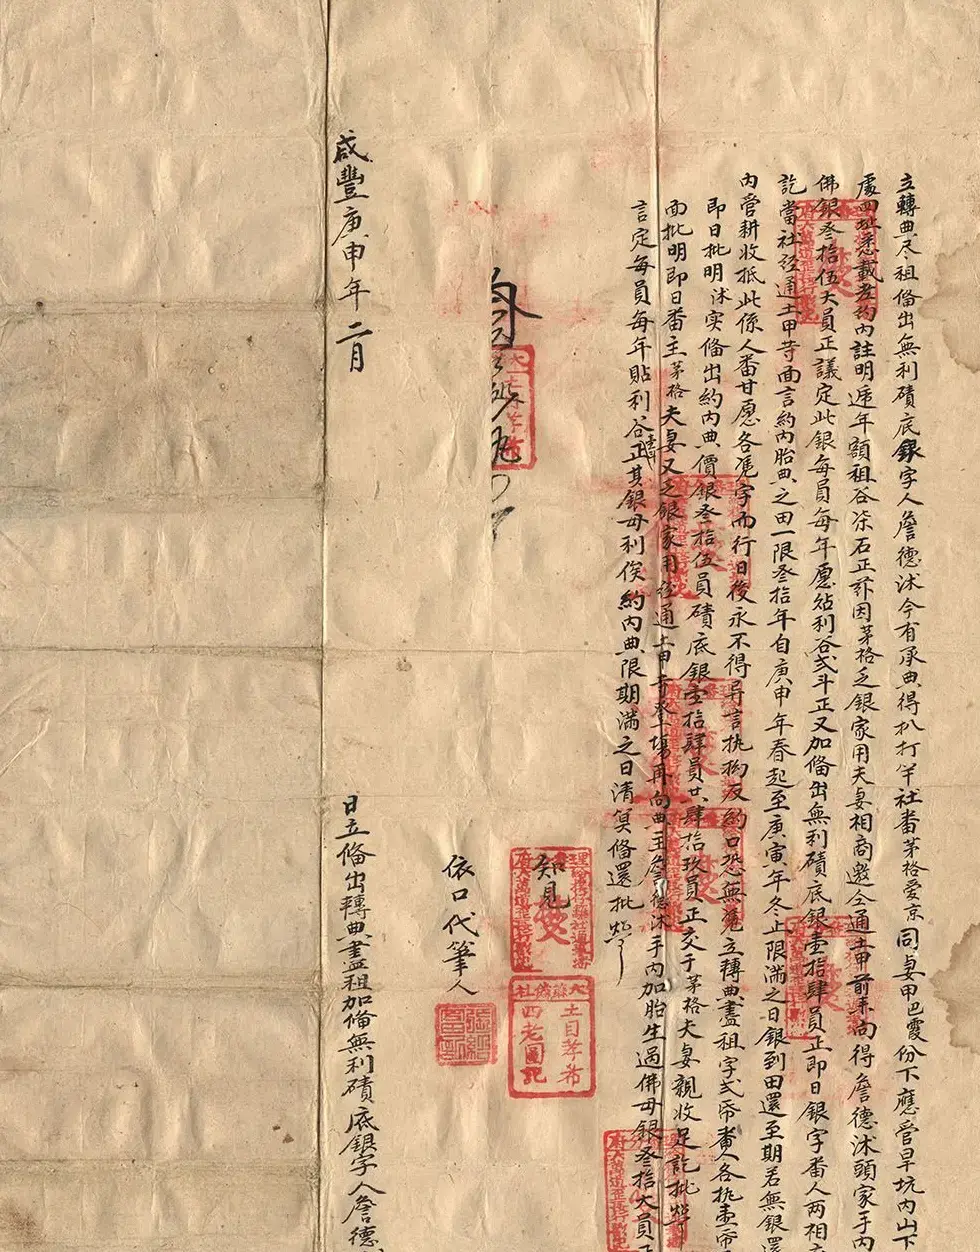 立轉典尽租備出無利磧底銀字人詹德沭今有承典得扒打半社番茅格爱京同妻甲巴霞份下應管旱坑內山下
處四址悉載老約內註明遞年額租谷柒石正茲因茅格乏銀家用夫妻相商邀仝通土甲前來向得詹德沭頭家手內
佛銀叁拾伍大員正議定此銀每員每年愿貼利谷弍斗正又加備出無利磧底銀壹拾肆員正即日銀字番人兩相
訖當社經通土甲等面言約內胎典之田一限叁拾年自庚申年春起至庚寅年冬止限滿之日銀到田還至期若無銀還
內管耕收抵此係人番甘愿各凭字而行日後永不得异言执拗反約口恐無凭立轉典盡租字弍帋番人各执壹帋
即日批明沭实備出約內典價銀叁拾伍員磧底銀壹拾肆員共肆拾玖員正交于茅格夫妻親收足訖批炤
面批明即日番主茅格夫妻又乏銀家用經通土甲等登塲再向典主詹德沭手內加胎生過佛母銀叁拾大員正
言定每員每年貼利谷正其銀母利俟約內典限期滿之日清筭備還批炤
知見
大龢佛社
土目孝希
四老圓記
依口代筆人
咸豐庚申年二月
日立備出轉典盡租加備無利磧底銀字人詹德